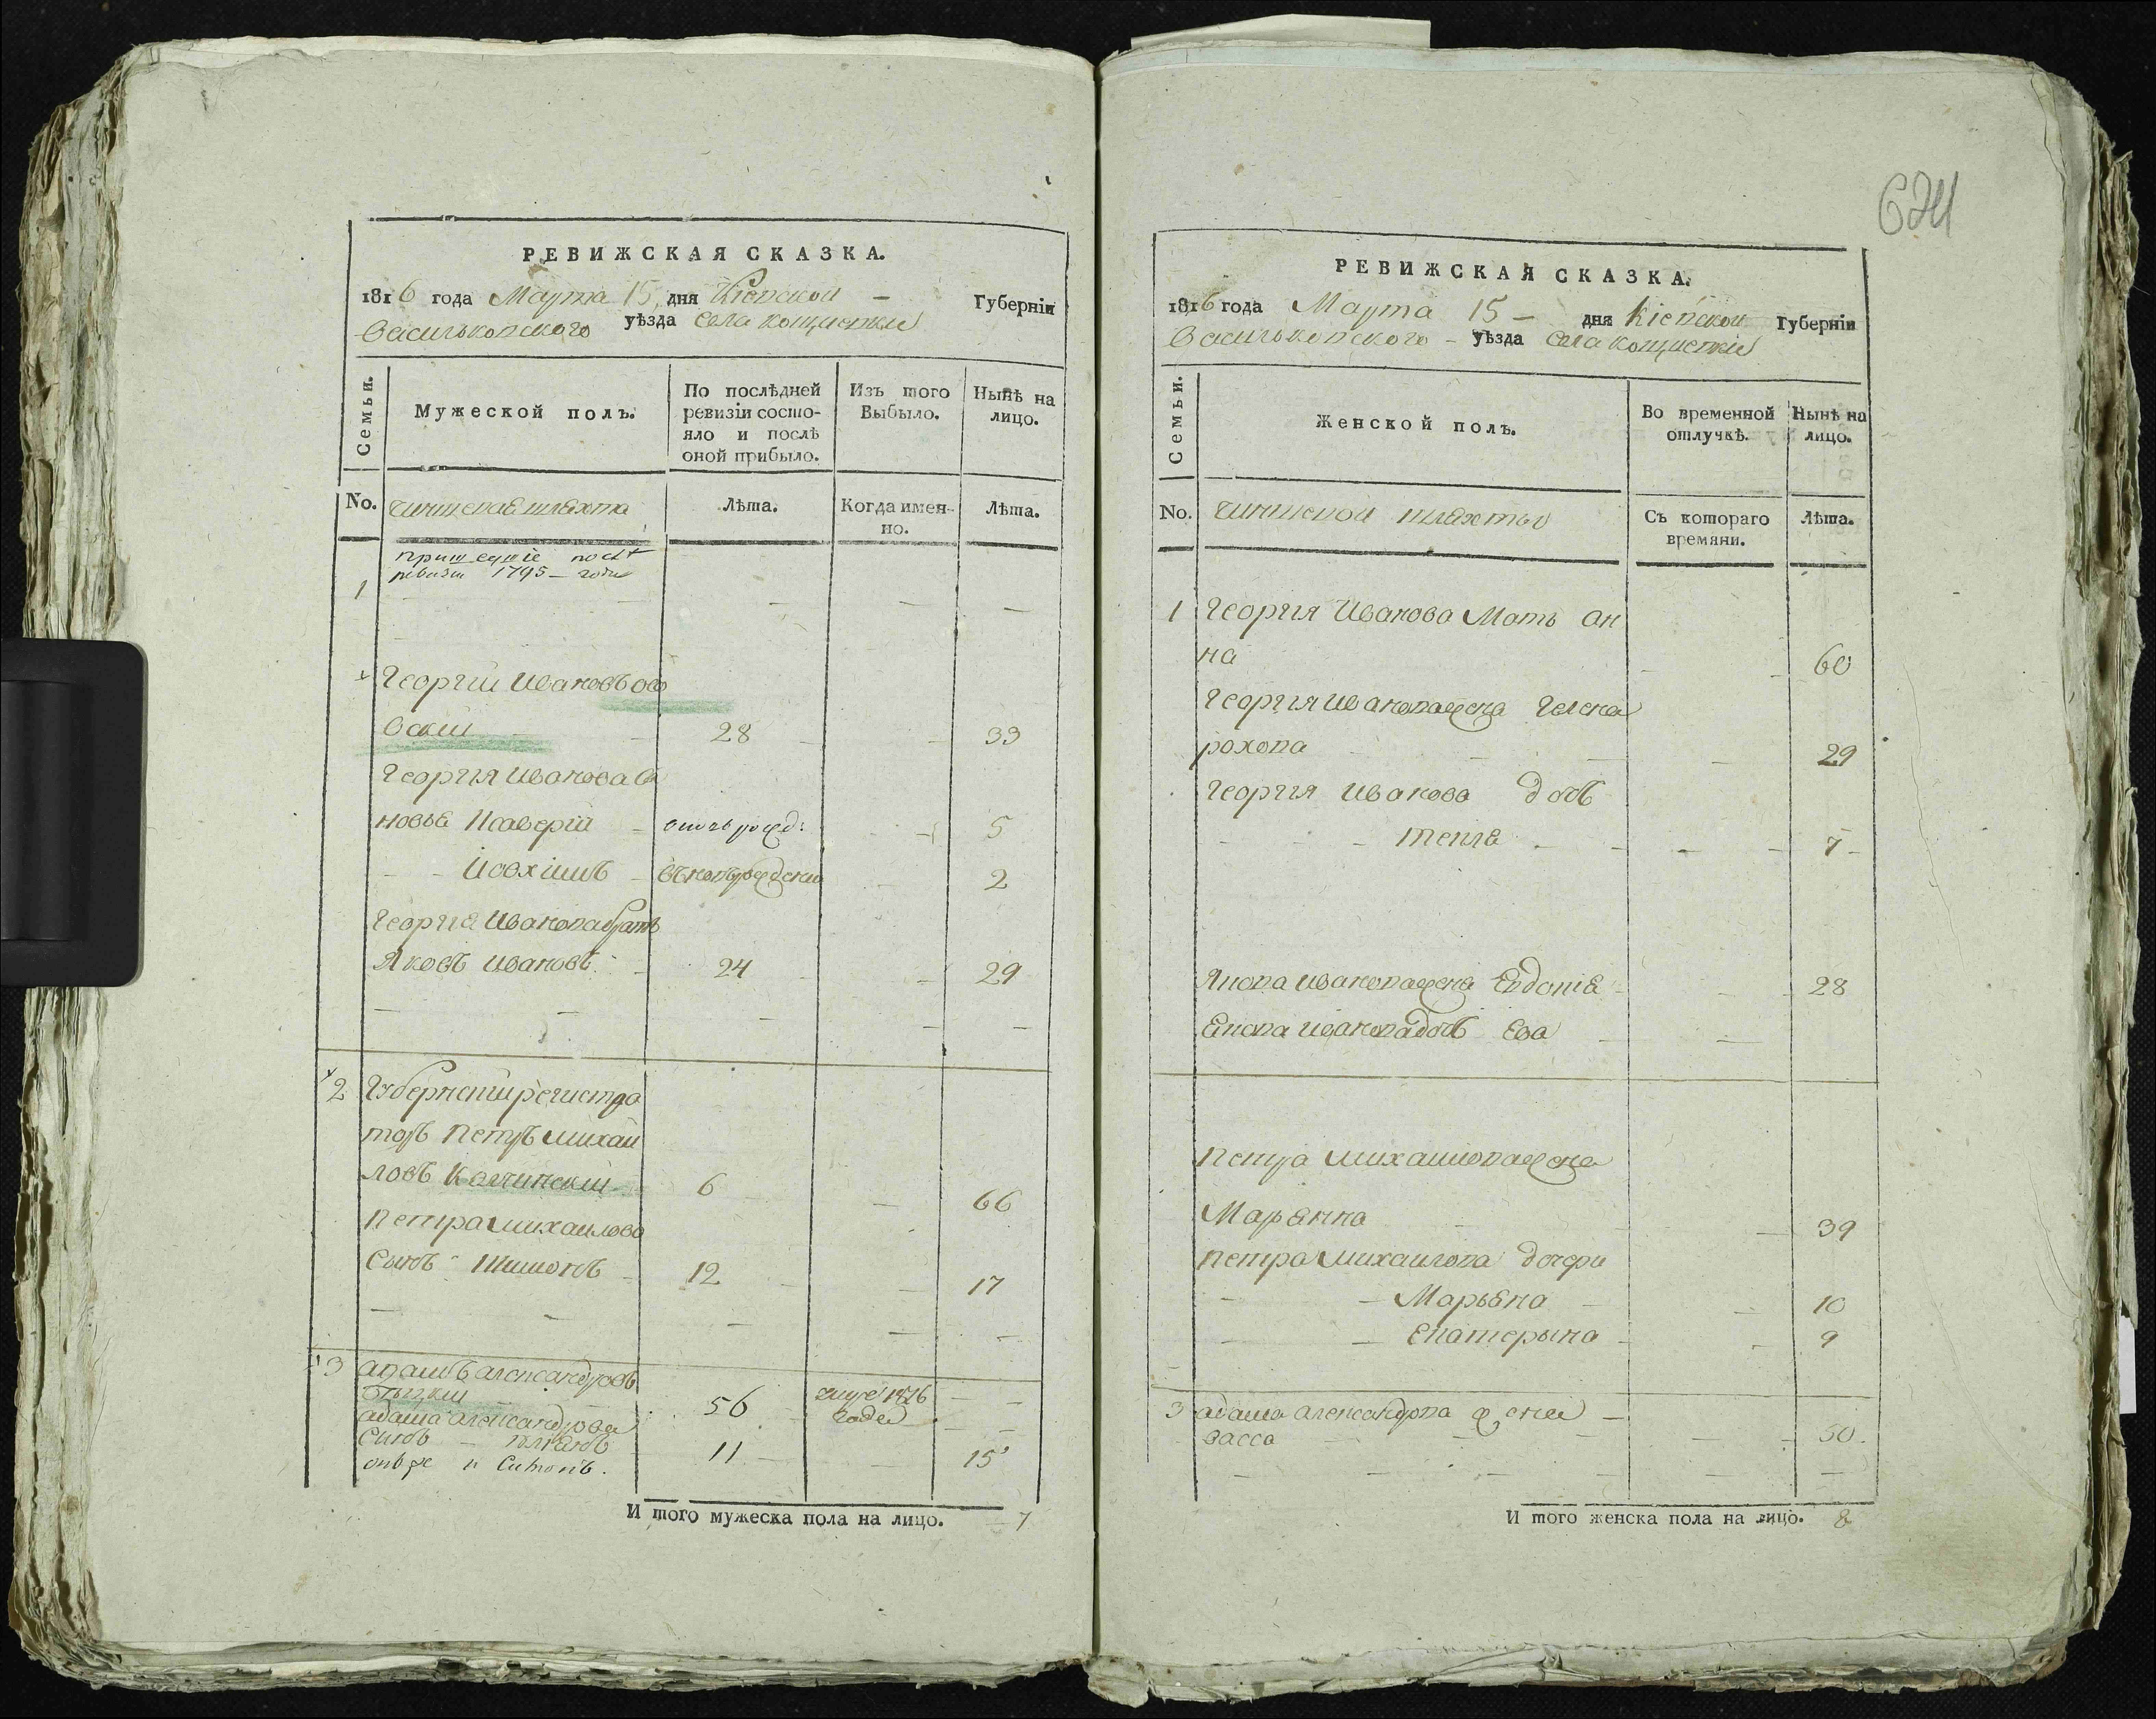 РЕВИЖСКАЯ СКАЗКА.
1816 года Марта 15, дня Кіевской – Губерніи
Васильковского уѣзда села
Семьи.
Мужеской полъ.
По послѣдней ревизіи состо-
яло и послѣ
оной прибыло.
Изъ того
Выбыло.
Нынѣ на
лицо.
No. Чиншевая шляхта
Лѣта.
Когда имен-
но.
Лѣта.
1
ревизіи 1795 – года
Георгій Ивановъ
28 33
Георгия Иванова Сы
новья Ксаверій 5
Иоахимъ 2
Георгия Иванова братъ
Яковъ Ивановъ 24 29
2 Губернский регистра
торъ Петръ Михай
ловъ 6 66
Петра Михаилова
Сынъ Шимонъ 12 17
3 Адамъ Александровъ
56 года
Адама Александрова
Сынъ 11 15
онъ же и Симонъ.
И того мужеска пола на лицо. 7
624
РЕВИЖСКАЯ СКАЗКА.
1816 года Марта 15 – дня Кіевской Губерніи
Васильковского – уѣзда села
Семьи.
Женской полъ.
Во временной
отлучкѣ.
Нынѣ на
лицо.
No. Чиншевой шляхты
Съ котораго
времяни.
Лѣта.
1 Георгия Иванова Мать Ан
на 60
Георгия Иванова жена
29
Георгия Иванова дочь
Текля 7
Якова Иванова жена 28
Якова Иванова дочь Ева
Петра Михаилова жена
Марьянна 39
Петра Михаилова дочери
Марьяна 10
Екатерына 9
3 Адама Александрова жена
Васса 50
И того женска пола на лицо. 8